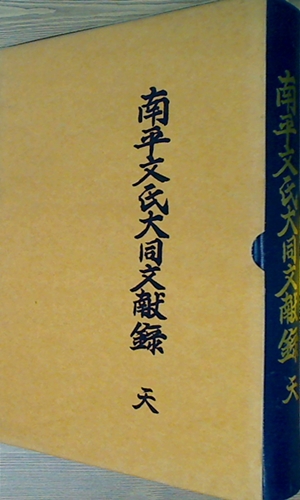 南平文氏大同文献録 天
南平文氏大同文献録 天